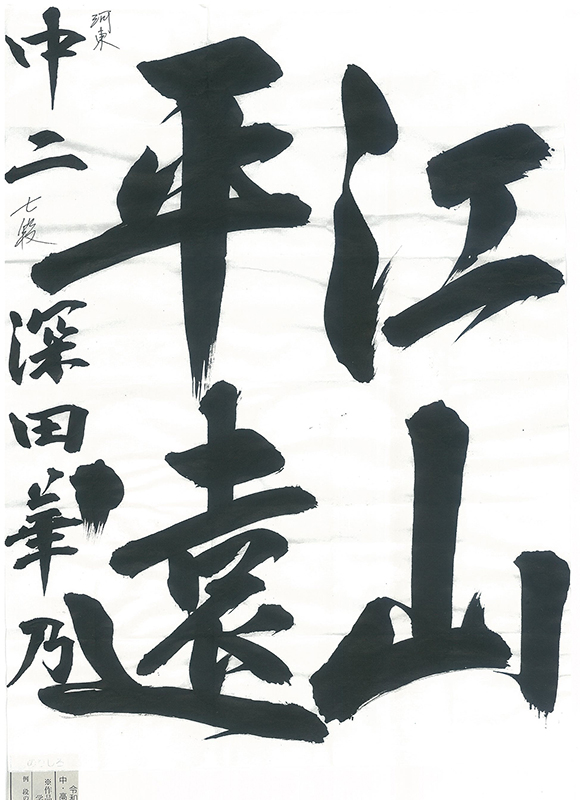 江山
平遠
河東
中二 七段 深田華乃
令和
中・高
※作品